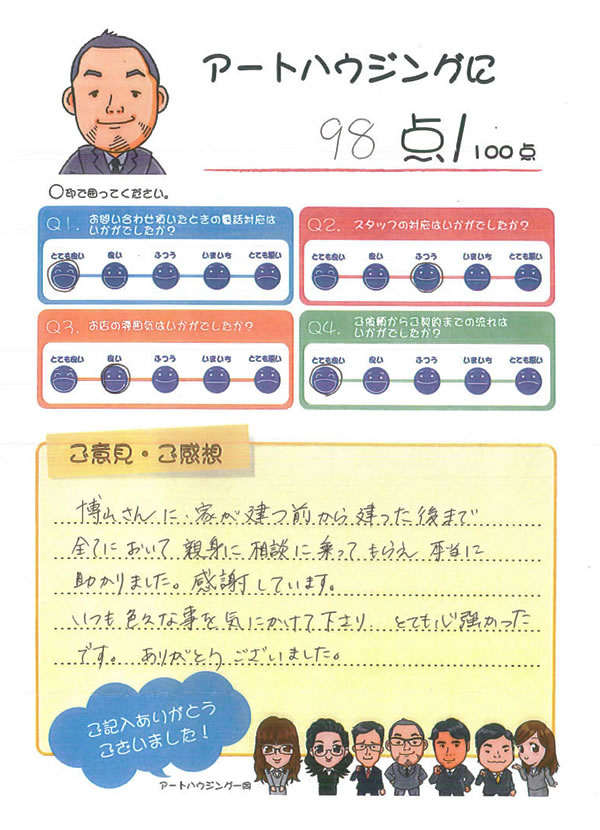 アートハウジングに
98 点/100点
○印で囲ってください。
Q1. お問い合わせ頂いたときの電話対応は
いかがでしたか?
とても良い 良い ふつう いまいち とても悪い
Q2. スタッフの対応はいかがでしたか?
とても良い 良い ふつう いまいち とても悪い
Q3. お店の雰囲気はいかがでしたか?
とても良い 良い ふつう いまいち とても悪い
Q4. ご依頼からご契約までの流れは
いかがでしたか?
とても良い 良い ふつう いまいち とても悪い
ご意見・ご感想
博山さんに、家が建つ前から建った後まで
全てにおいて親身に相談に乗ってもらえ本当に
助かりました。感謝しています。
いつも色々な事を気にかけて下さり、とても心強かった
です。ありがとうございました。
ご記入ありがとう
ございました!
アートハウジング一同